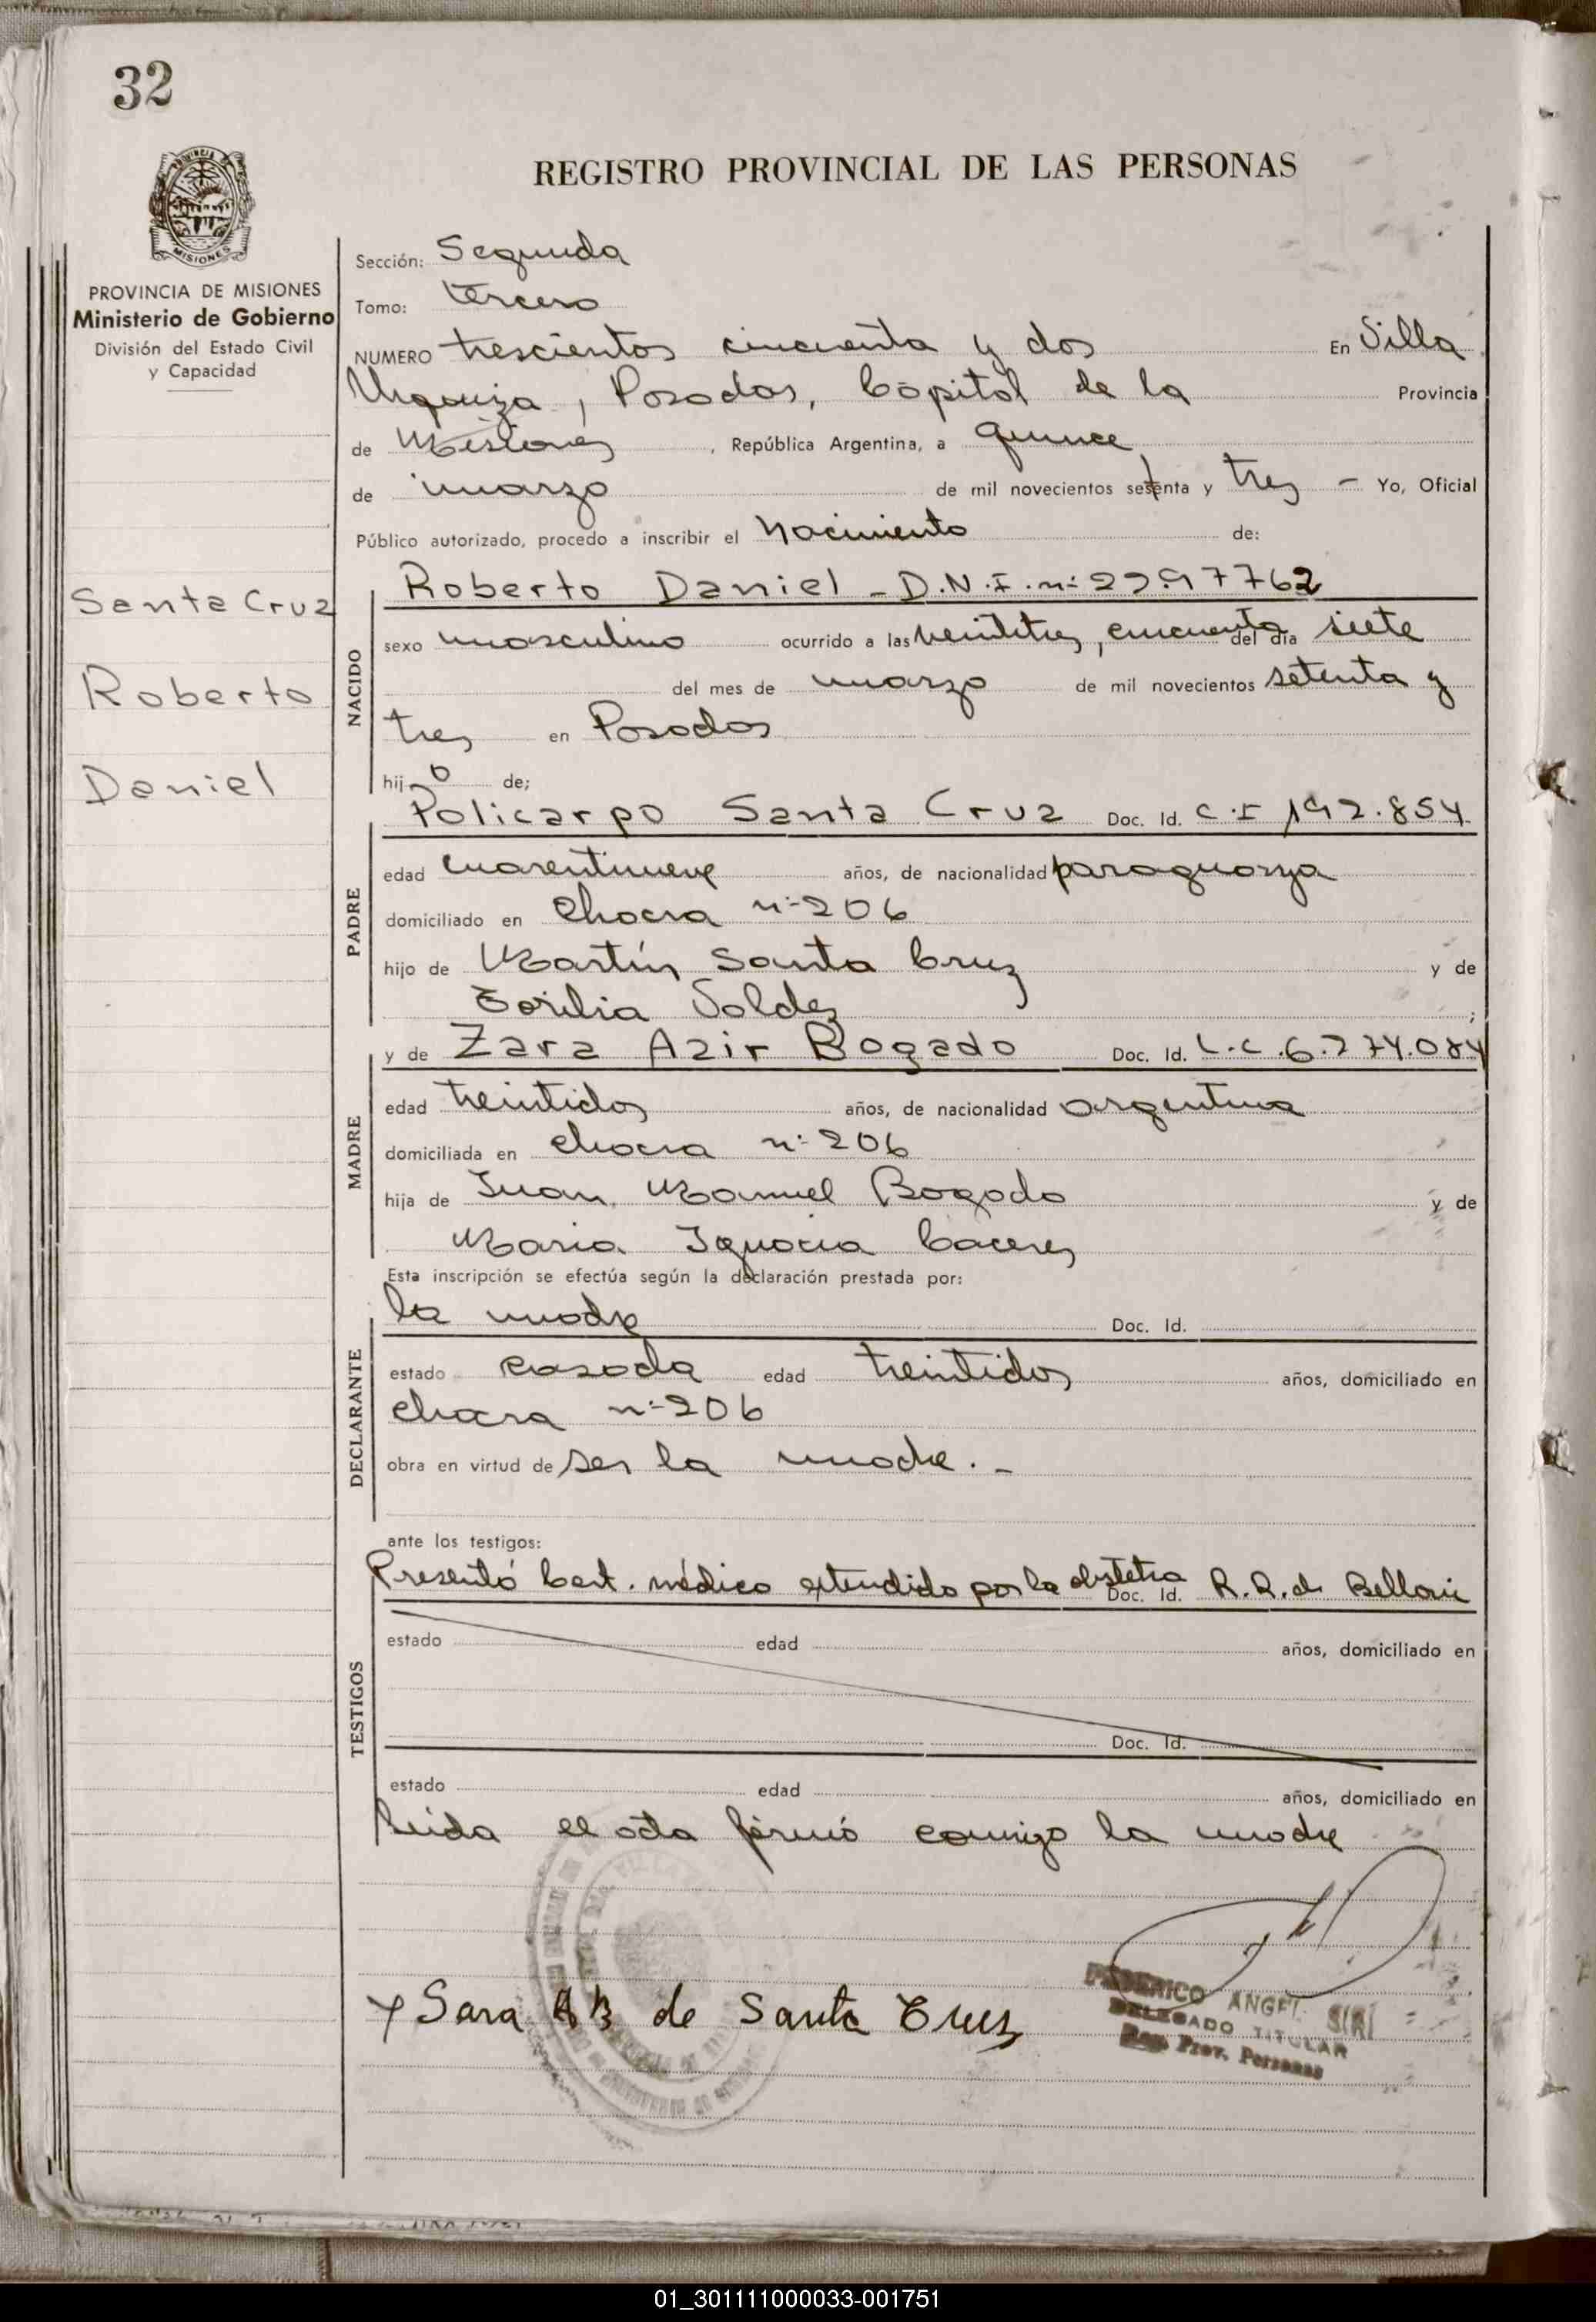 32
REGISTRO PROVINCIAL DE LAS PERSONAS
MISIONES
PROVINCIA DE MISIONES
Ministerio de Gobierno
División del Estado Civil
y Capacidad
Sección: Segunda
Tomo: tercero
NUMERO trescientos cincuenta y dos En Villa
Urquiza, Posadas, Capital de la Provincia
de Misiones, República Argentina, a quince
de marzo de mil novecientos setenta y tres - Yo, Oficial
Público autorizado, procedo a inscribir el Nacimiento de:
Santa Cruz
Roberto
Daniel
NACIDO
Roberto Daniel - D.N.I. n:
sexo masculino ocurrido a las veintitres, cincuenta del día siete
del mes de marzo de mil novecientos setenta y
tres en Posadas
hijo de;
PADRE
Policarpo Santa Cruz Doc. Id. C.I 192.854
edad cuarentinueve años, de nacionalidad paraguaya
domiciliado en Chacra n:206
hijo de Martín Santa Cruz y de
Valdez;
MADRE
y de Zara Azir Bogado Doc. Id. L.C.6.274.084
edad treintidos años, de nacionalidad argentina
domiciliada en chacra n:206
hija de Juan Manuel Bogado y de
Maria Ignacia Caceres
DECLARANTE
Esta inscripción se efectúa según la declaración prestada por:
la madre Doc. Id.
estado casada edad treintidos años, domiciliado en
chacra n:206
obra en virtud de ser la madre. -
TESTIGOS
ante los testigos:
Presentó Cert. médico extendido por la obstetra Doc. Id. R.R. de
estado edad años, domiciliado en
Doc. Id.
estado edad años, domiciliado en
Leida el acta firmó conmigo la madre
Sara A B de Santa Cruz
FEDERICO ANGEL SIRI
DELEGADO TITULAR
Reg. Prov. Personas
01_301111000033-001751